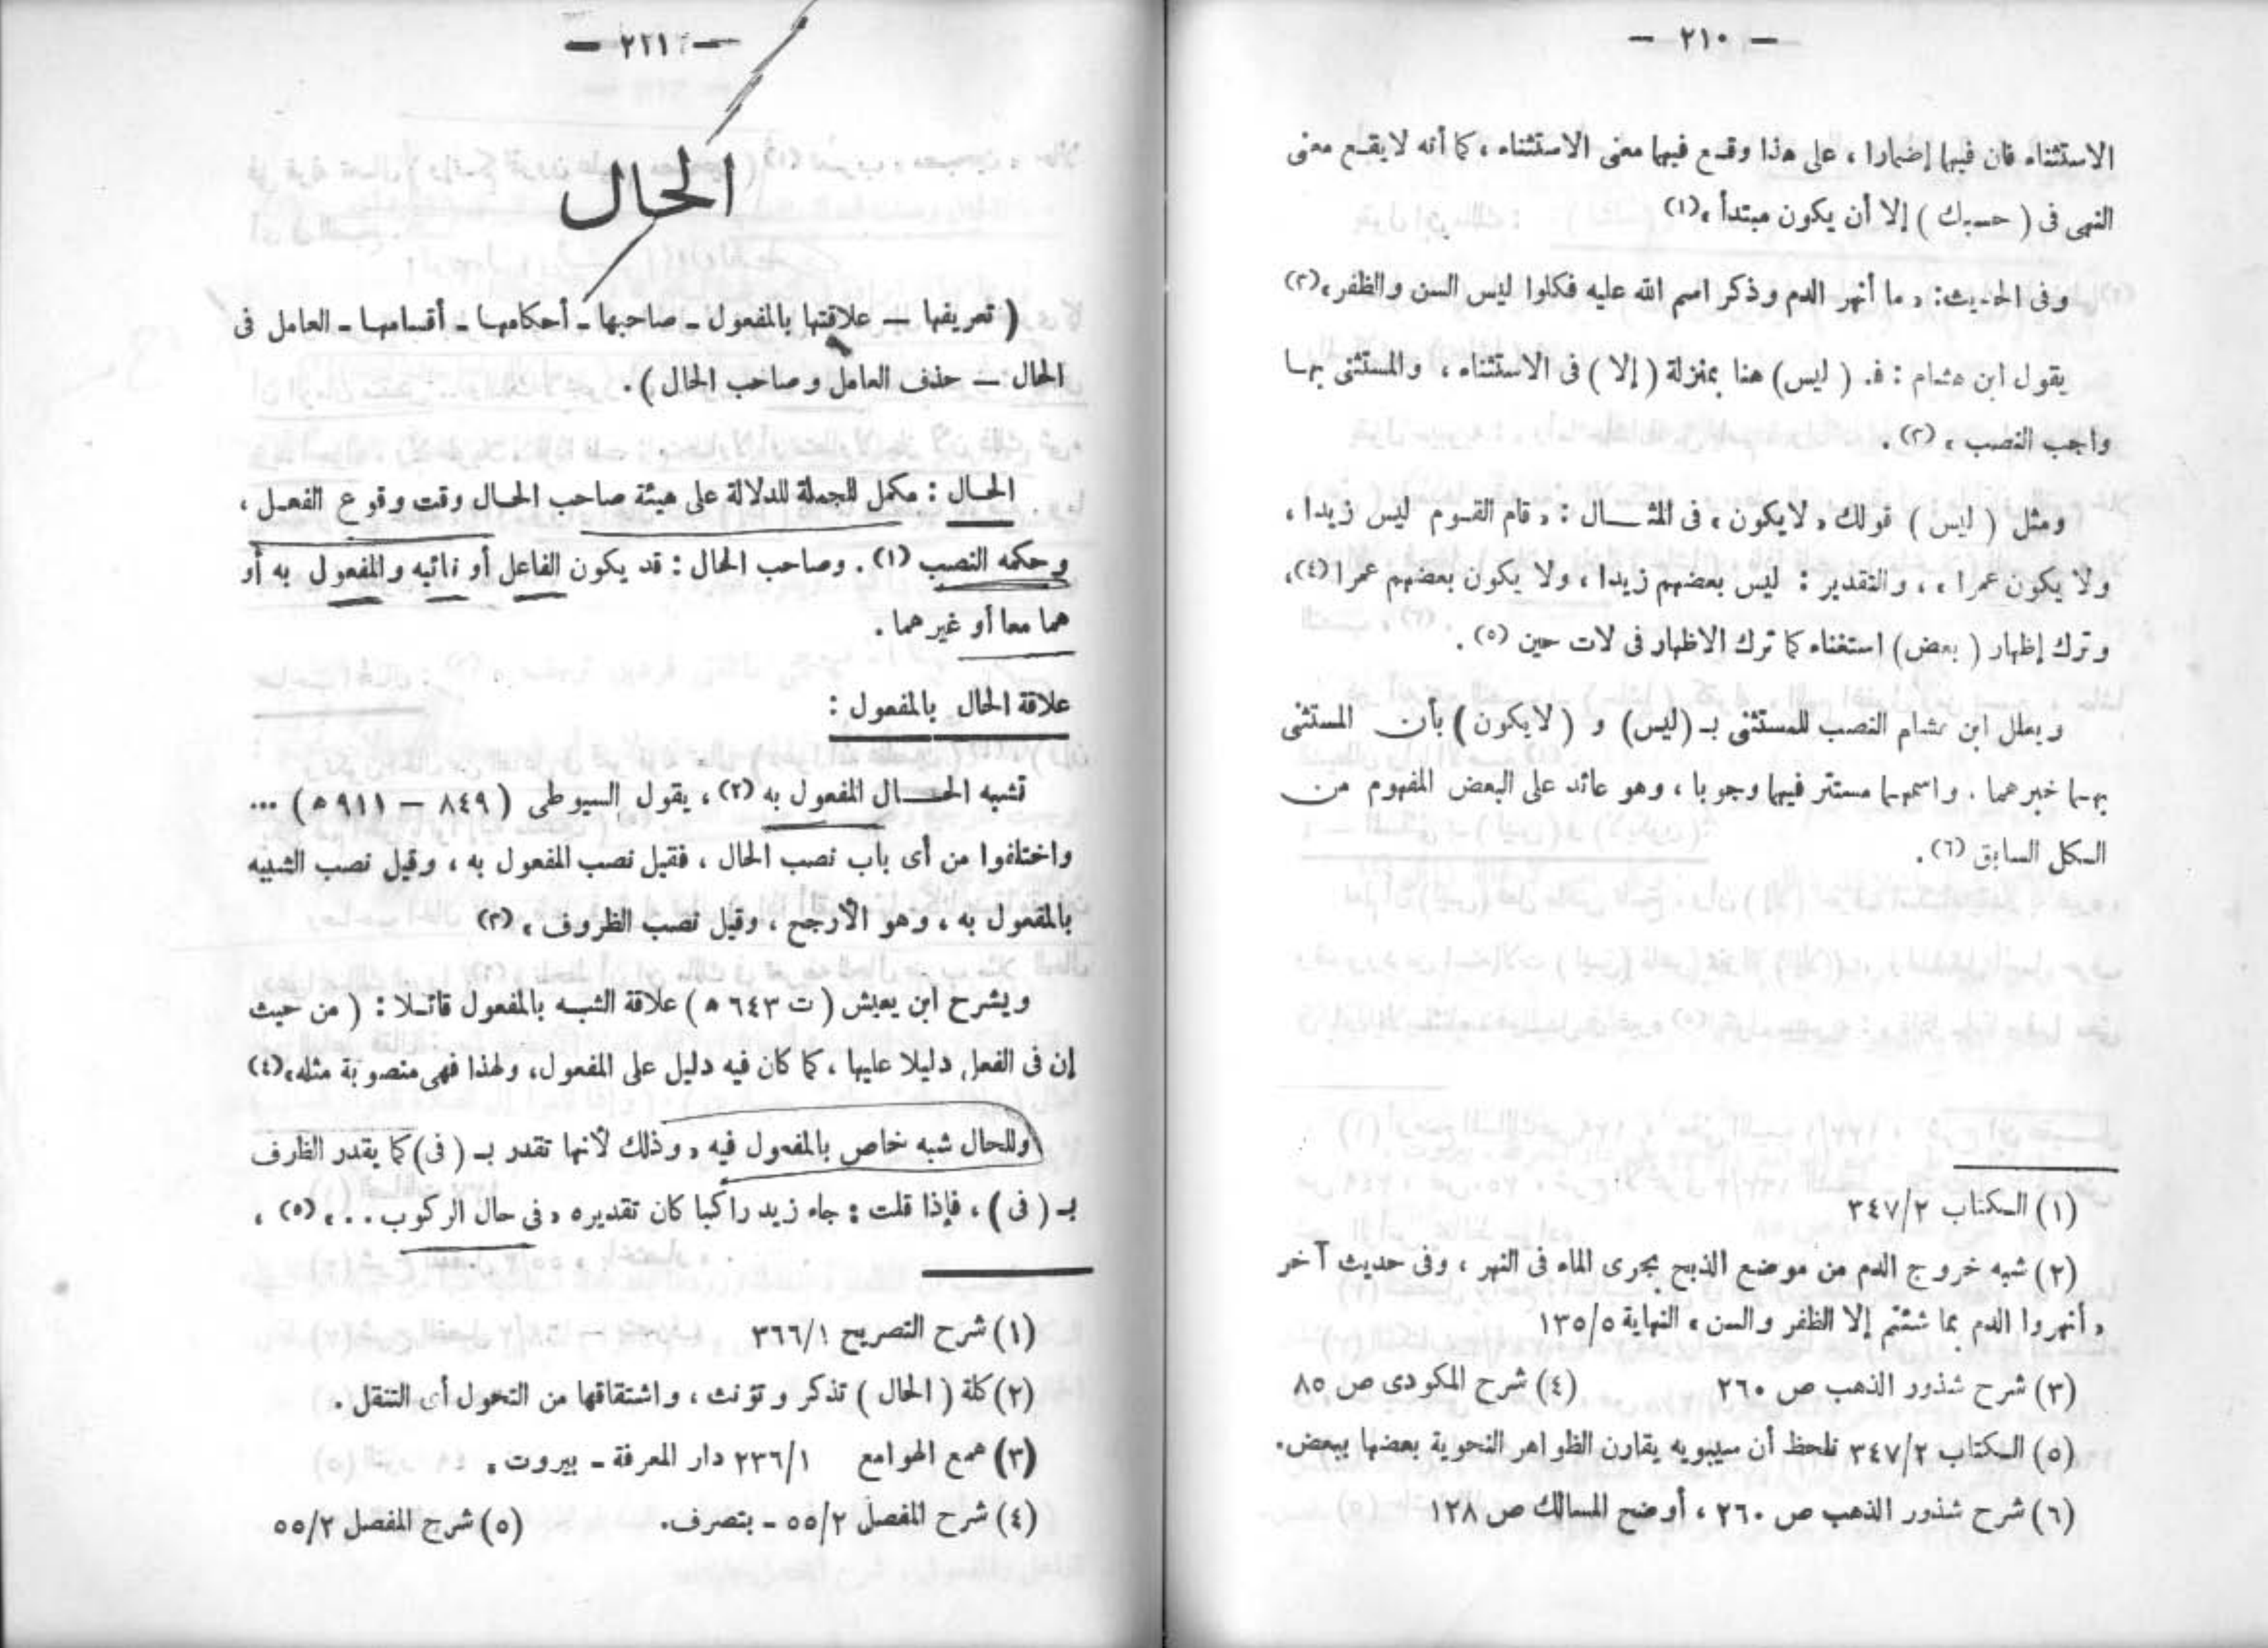 — ٢١٠ —
الاستثناء فان فيها إضمارا ، على هذا وقع فيها معنى الاستثناء ، كما أنه لايقع معنى
النهى فى ( حسبك ) إلا أن يكون مبتدأ »(١)
وفى الحديث: « ما أنهر الدم وذكر اسم الله عليه فكلوا ليس السن والظفر»(٢)
يقول ابن هشام : فـ ( ليس) هنا بمنزلة ( إلا ) فى الاستثناء ، والمستثنى بها
واجب النصب » (٣) .
ومثل ( ليس ) قولك « لايكون » فى المثال : « قام القوم ليس زيدا ،
ولا يكون عمرا » ، والتقدير : ليس بعضهم زيدا ، ولا يكون بعضهم عمرا (٤)،
وترك إظهار ( بعض) استغناء كما ترك الاظهار فى لات حين (٥) .
ويعلل ابن هشام النصب للمستثنى بـ (ليس) و ( لايكون ) بأن المستثنى
بهما خبرهما . واسمهما مستتر فيهما وجوبا ، وهو عائد على البعض المفهوم من
الكل السابق (٦) .
(١) الكتاب ٣٤٧/٢
(٢) شبه خروج الدم من موضع الذبح بجرى الماء فى النهر ، وفى حديث آخر
« أنهروا الدم بما شئتم إلا الظفر والسن » النهاية ١٣٥/٥
(٣) شرح شذور الذهب ص ٢٦٠ (٤) شرح المكودى ص ٨٥
(٥) الكتاب ٣٤٧/٢ نلحظ أن سيبويه يقارن الظواهر النحوية بعضها ببعض.
(٦) شرح شذور الذهب ص ٢٦٠ ، أوضح المسالك ص ١٢٨
— ٢١١ —
الحال
( تعريفها — علاقتها بالمفعول ـ صاحبها ـ أحكامها ـ أقسامها ـ العامل فى
الحال — حذف العامل وصاحب الحال ) .
الحال : مكمل للجملة للدلالة على هيئة صاحب الحال وقت وقوع الفعل ،
وحكمه النصب (١) . وصاحب الحال : قد يكون الفاعل أو نائبه والمفعول به أو
هما معا أو غيرهما .
علاقة الحال بالمفعول :
تشبه الحال المفعول به (٢) ، يقول السيوطى ( ٨٤٩ — ٩١١ ه ) ...
واختلفوا من أى باب نصب الحال ، فقيل نصب المفعول به ، وقيل نصب الشبيه
بالمفعول به ، وهو الأرجح ، وقيل نصب الظروف » (٣)
ويشرح ابن يعيش ( ت ٦٤٣ ه ) علاقة الشبه بالمفعول قائلا : ( من حيث
إن فى الفعل دليلا عليها ، كما كان فيه دليل على المفعول، ولهذا فهى منصوبة مثله»(٤)
وللحال شبه خاص بالمفعول فيه « وذلك لأنها تقدر بـ ( فى) كما يقدر الظرف
بـ ( فى ) ، فإذا قلت : جاء زيد راكبا كان تقديره « فى حال الركوب . . » (٥) ،
(١) شرح التصريح ٣٦٦/١
(٢) كلمة ( الحال ) تذكر وتؤنث ، واشتقاقها من التحول أى التنقل .
(٣) همع الهوامع ٢٣٦/١ دار المعرفة ـ بيروت .
(٤) شرح المفصل ٥٥/٢ ـ بتصرف. (٥) شرح المفصل ٥٥/٢